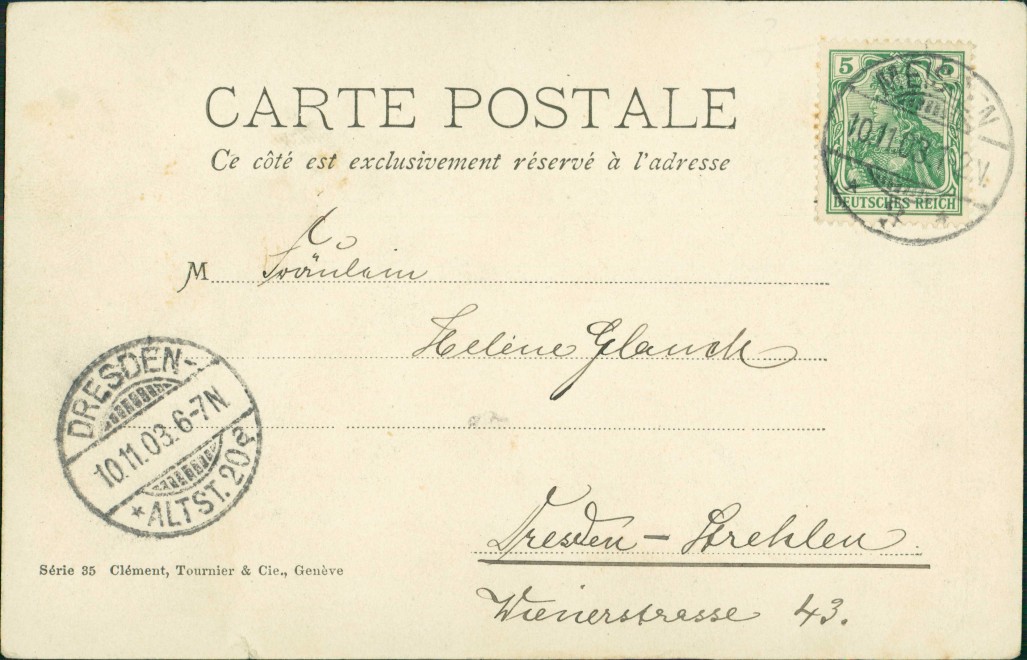 CARTE POSTALE
Ce côté est exclusivement réservé à l'adresse
5 5
DEUTSCHES REICH
10.11.03
V.
M Fräulein
Helene Glauch
DRESDEN-
10.11.03. 6-7N.
*ALTST. 20a
Dresden – Strehlen
Wienerstrasse 43.
Série 35 Clément, Tournier & Cie., Genève